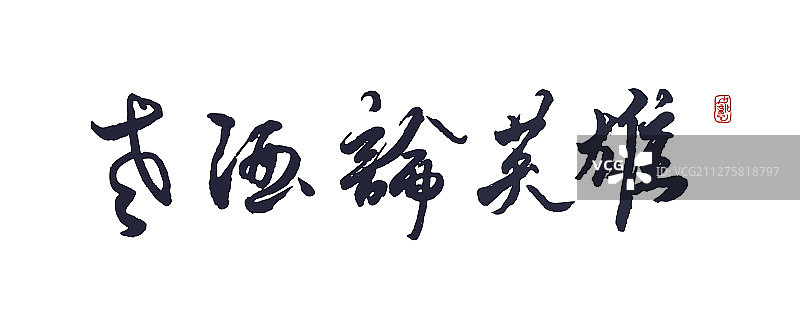 煮酒論英雄
VCG VCG211275818797